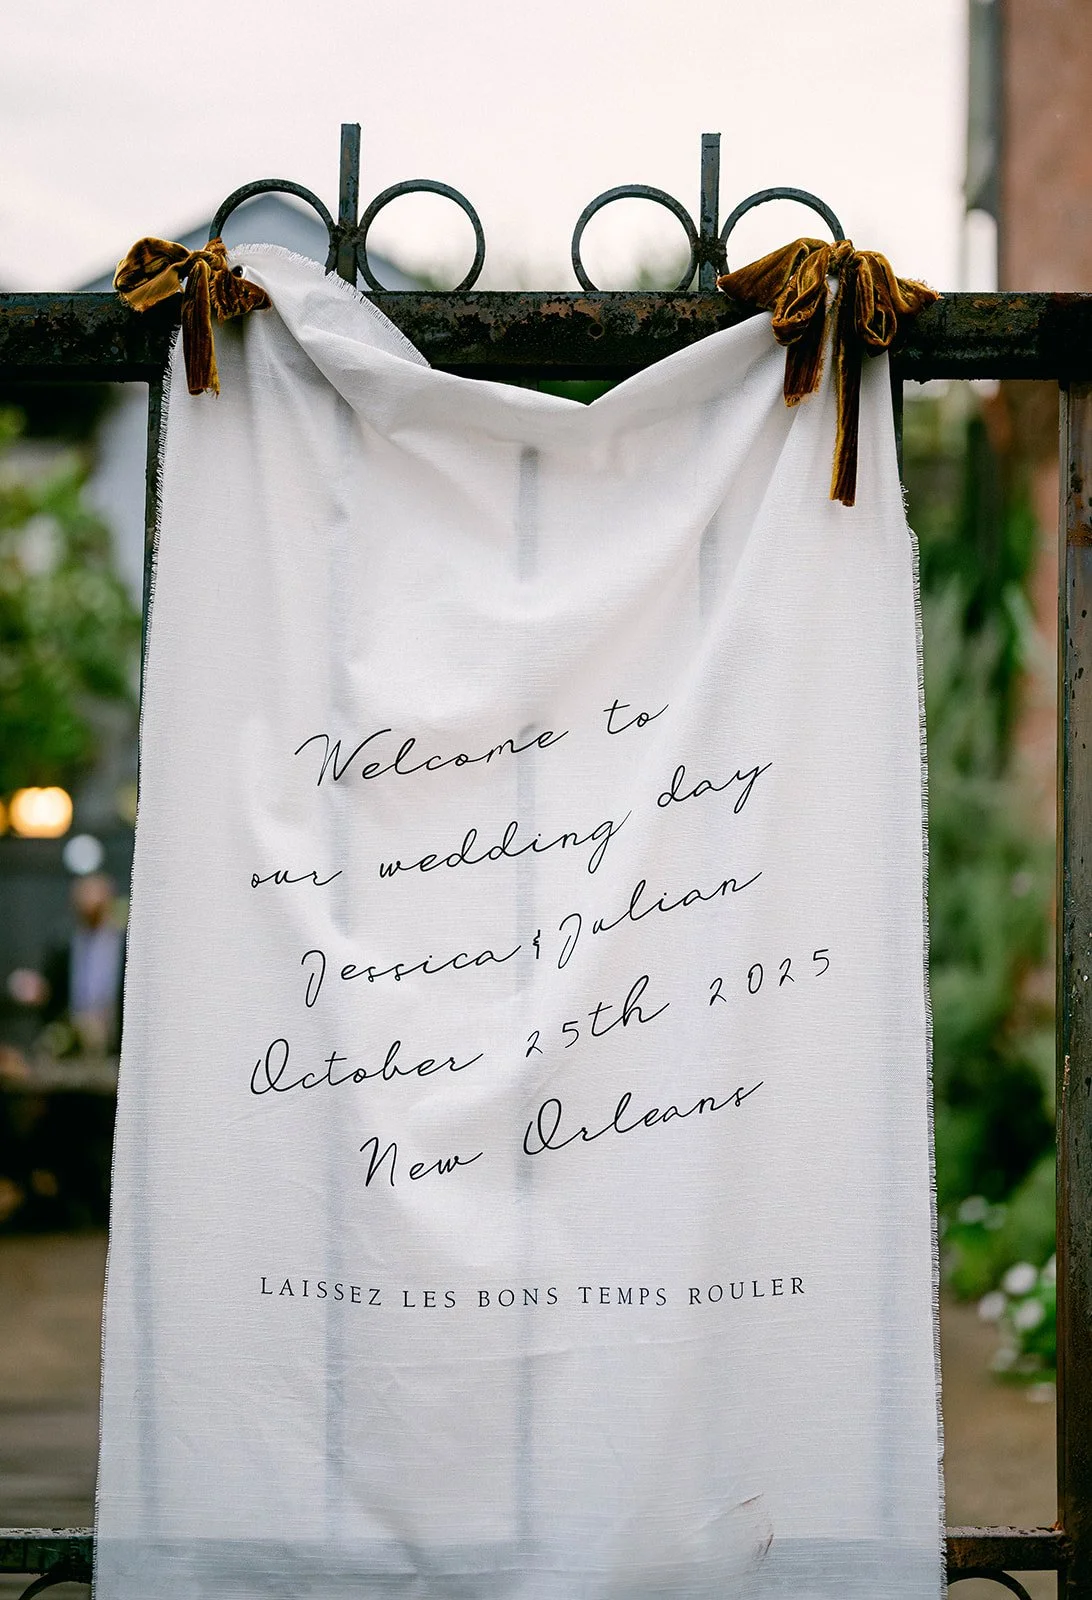 Welcome to
our wedding day
Jessica & Julian
October 25th 2025
New Orleans
LAISSEZ LES BONS TEMPS ROULER